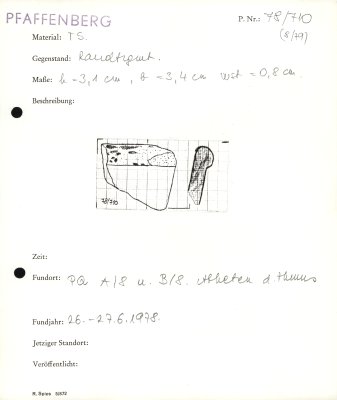 PFAFFENBERG
P. Nr.: 78/710
(8/79)
Material: TS.
Gegenstand: Randfrgmt.
Maße: h = 3,1 cm, b = 3,4 cm Wst = 0,8 cm.
Beschreibung:
78/710
Zeit:
Fundort: PQ A/8 u. B/8. Abheben d. Humus
Fundjahr: 26.-27.6.1978.
Jetziger Standort:
Veröffentlicht:
R. Spies